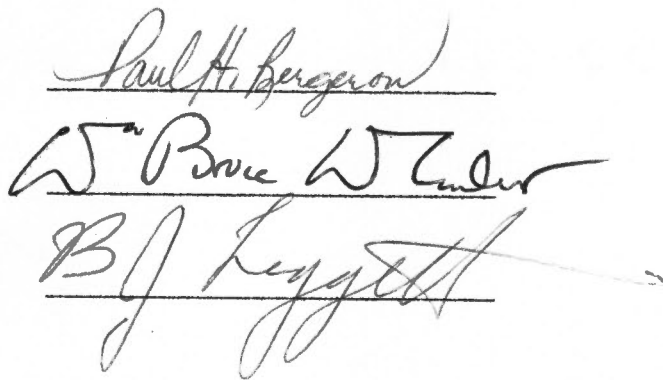 Paul H. Bergeron
Wm Bruce Wheeler
B J Leggett